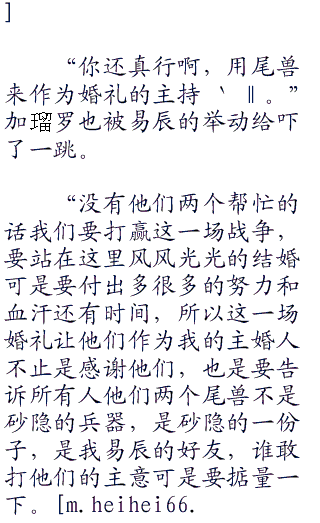 ]
“你还真行啊，用尾兽
来作为婚礼的主持 ‵ ‖。”
加瑠罗也被易辰的举动给吓
了一跳。
“没有他们两个帮忙的
话我们要打赢这一场战争，
要站在这里风风光光的结婚
可是要付出多很多的努力和
血汗还有时间，所以这一场
婚礼让他们作为我的主婚人
不止是感谢他们，也是要告
诉所有人他们两个尾兽不是
砂隐的兵器，是砂隐的一份
子，是我易辰的好友，谁敢
打他们的主意可是要掂量一
下。[m.heihei66.